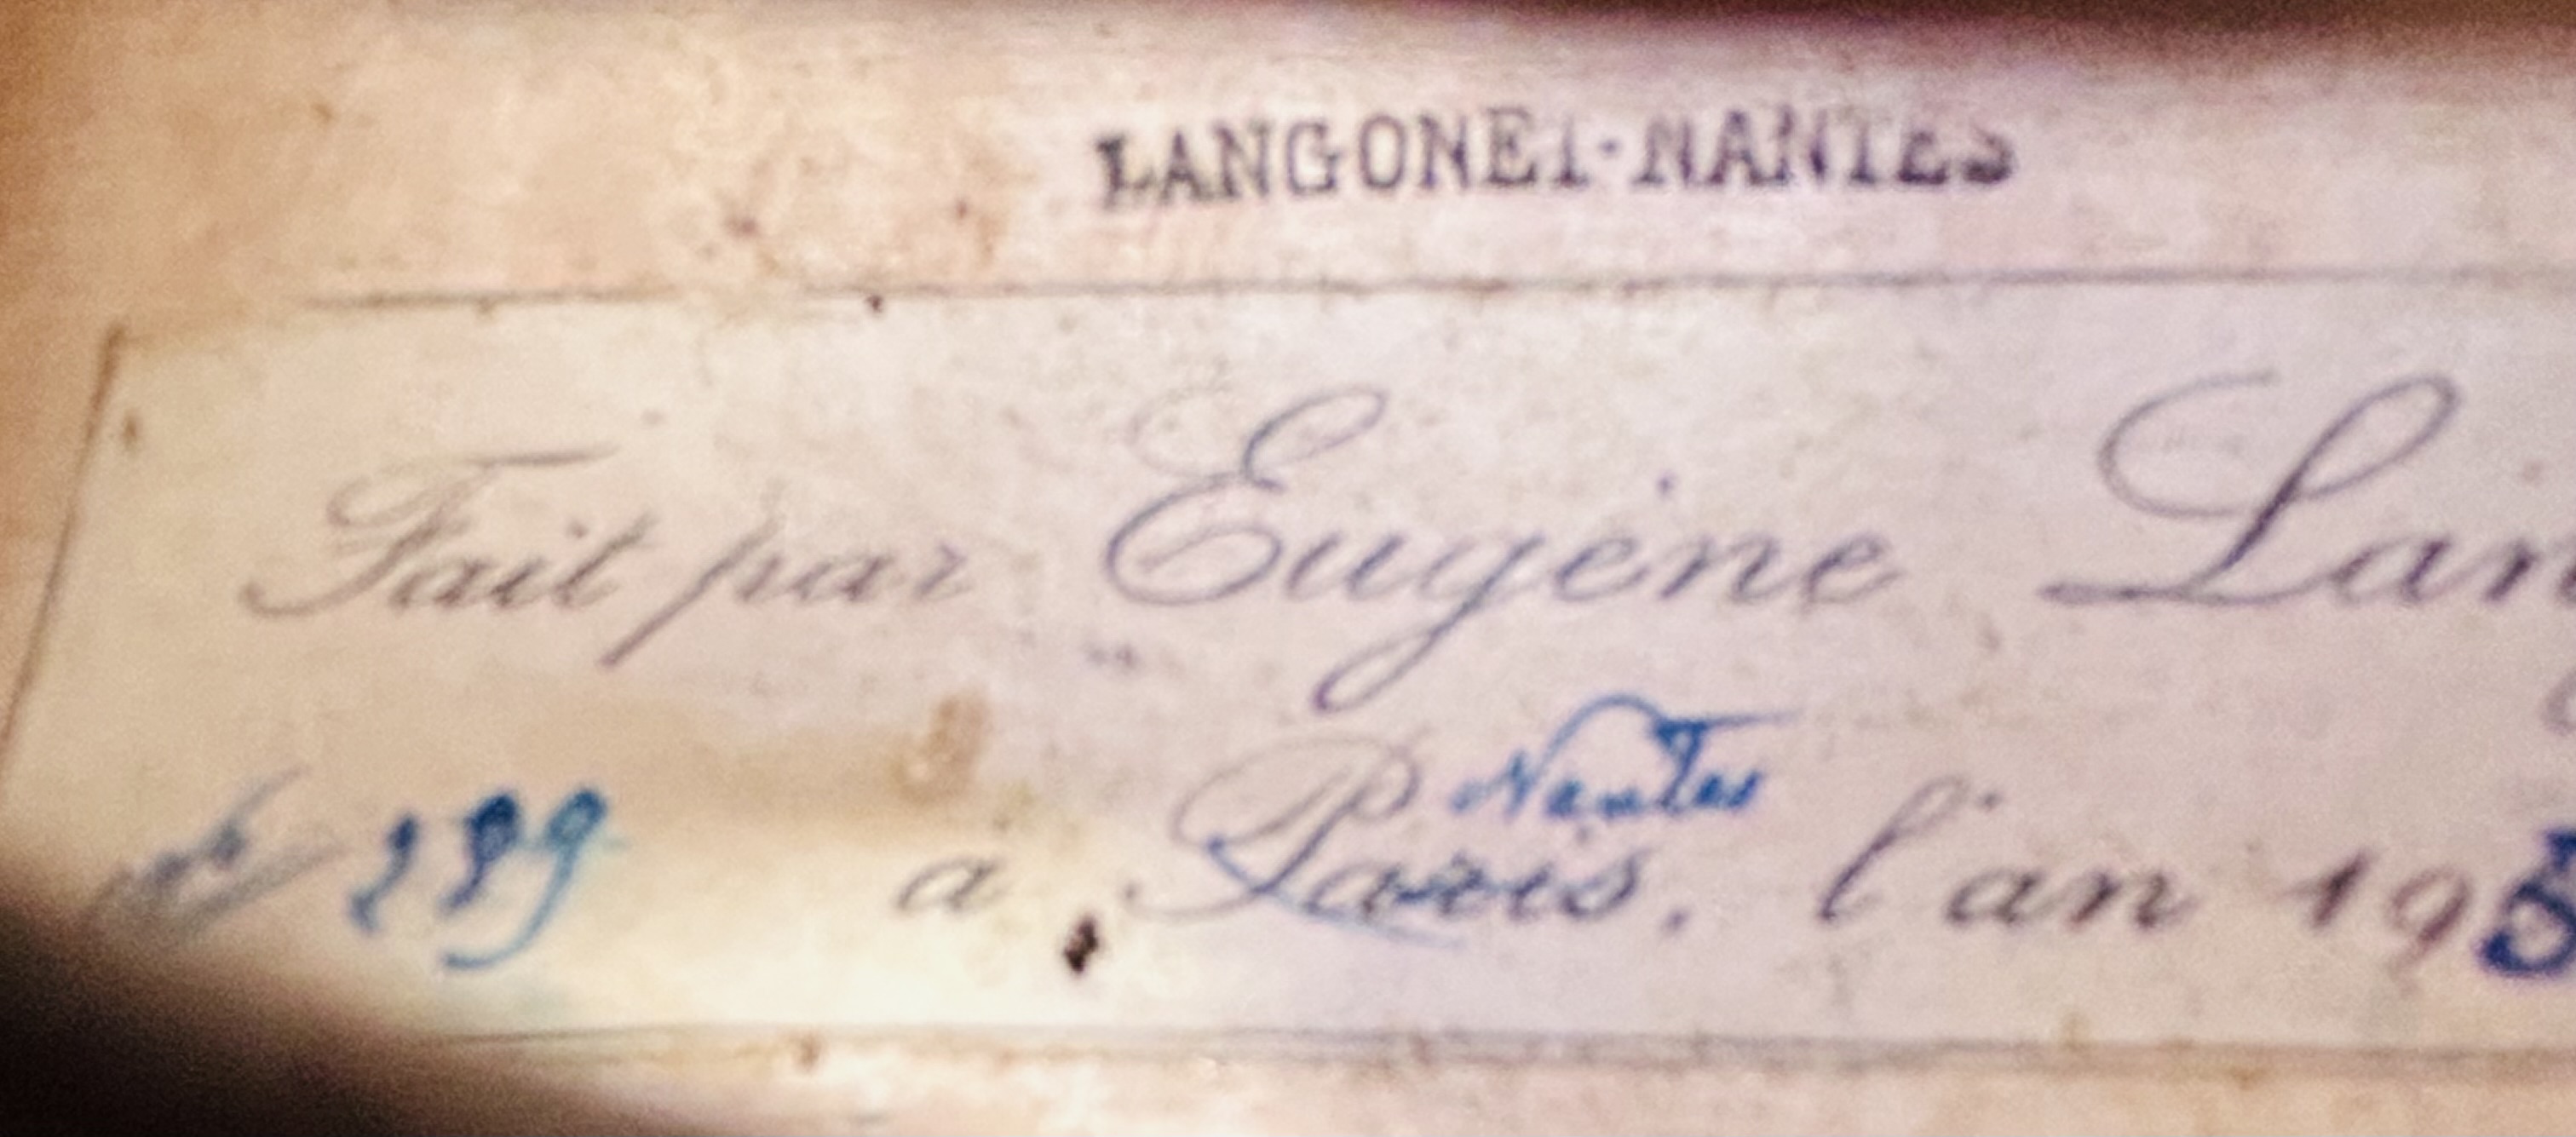 LANGONET·NANTES
Fait par Eugène Lan
N° 299
Nantes
a Paris, l'an 195